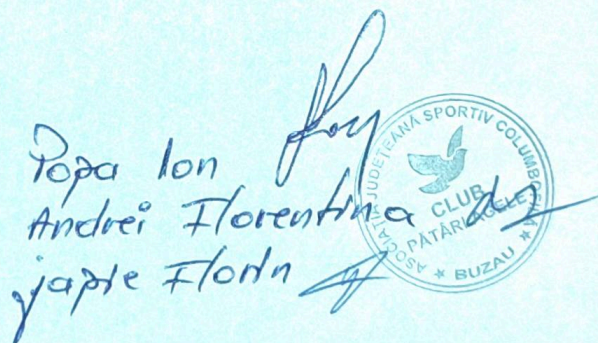 Popa Ion
Andrei Florentina
Japie Florin
ASOCIAȚIA JUDEȚEANĂ SPORTIV COLUMBOFILĂ
CLUB
PĂTÂRLAGELE
★ BUZAU ★